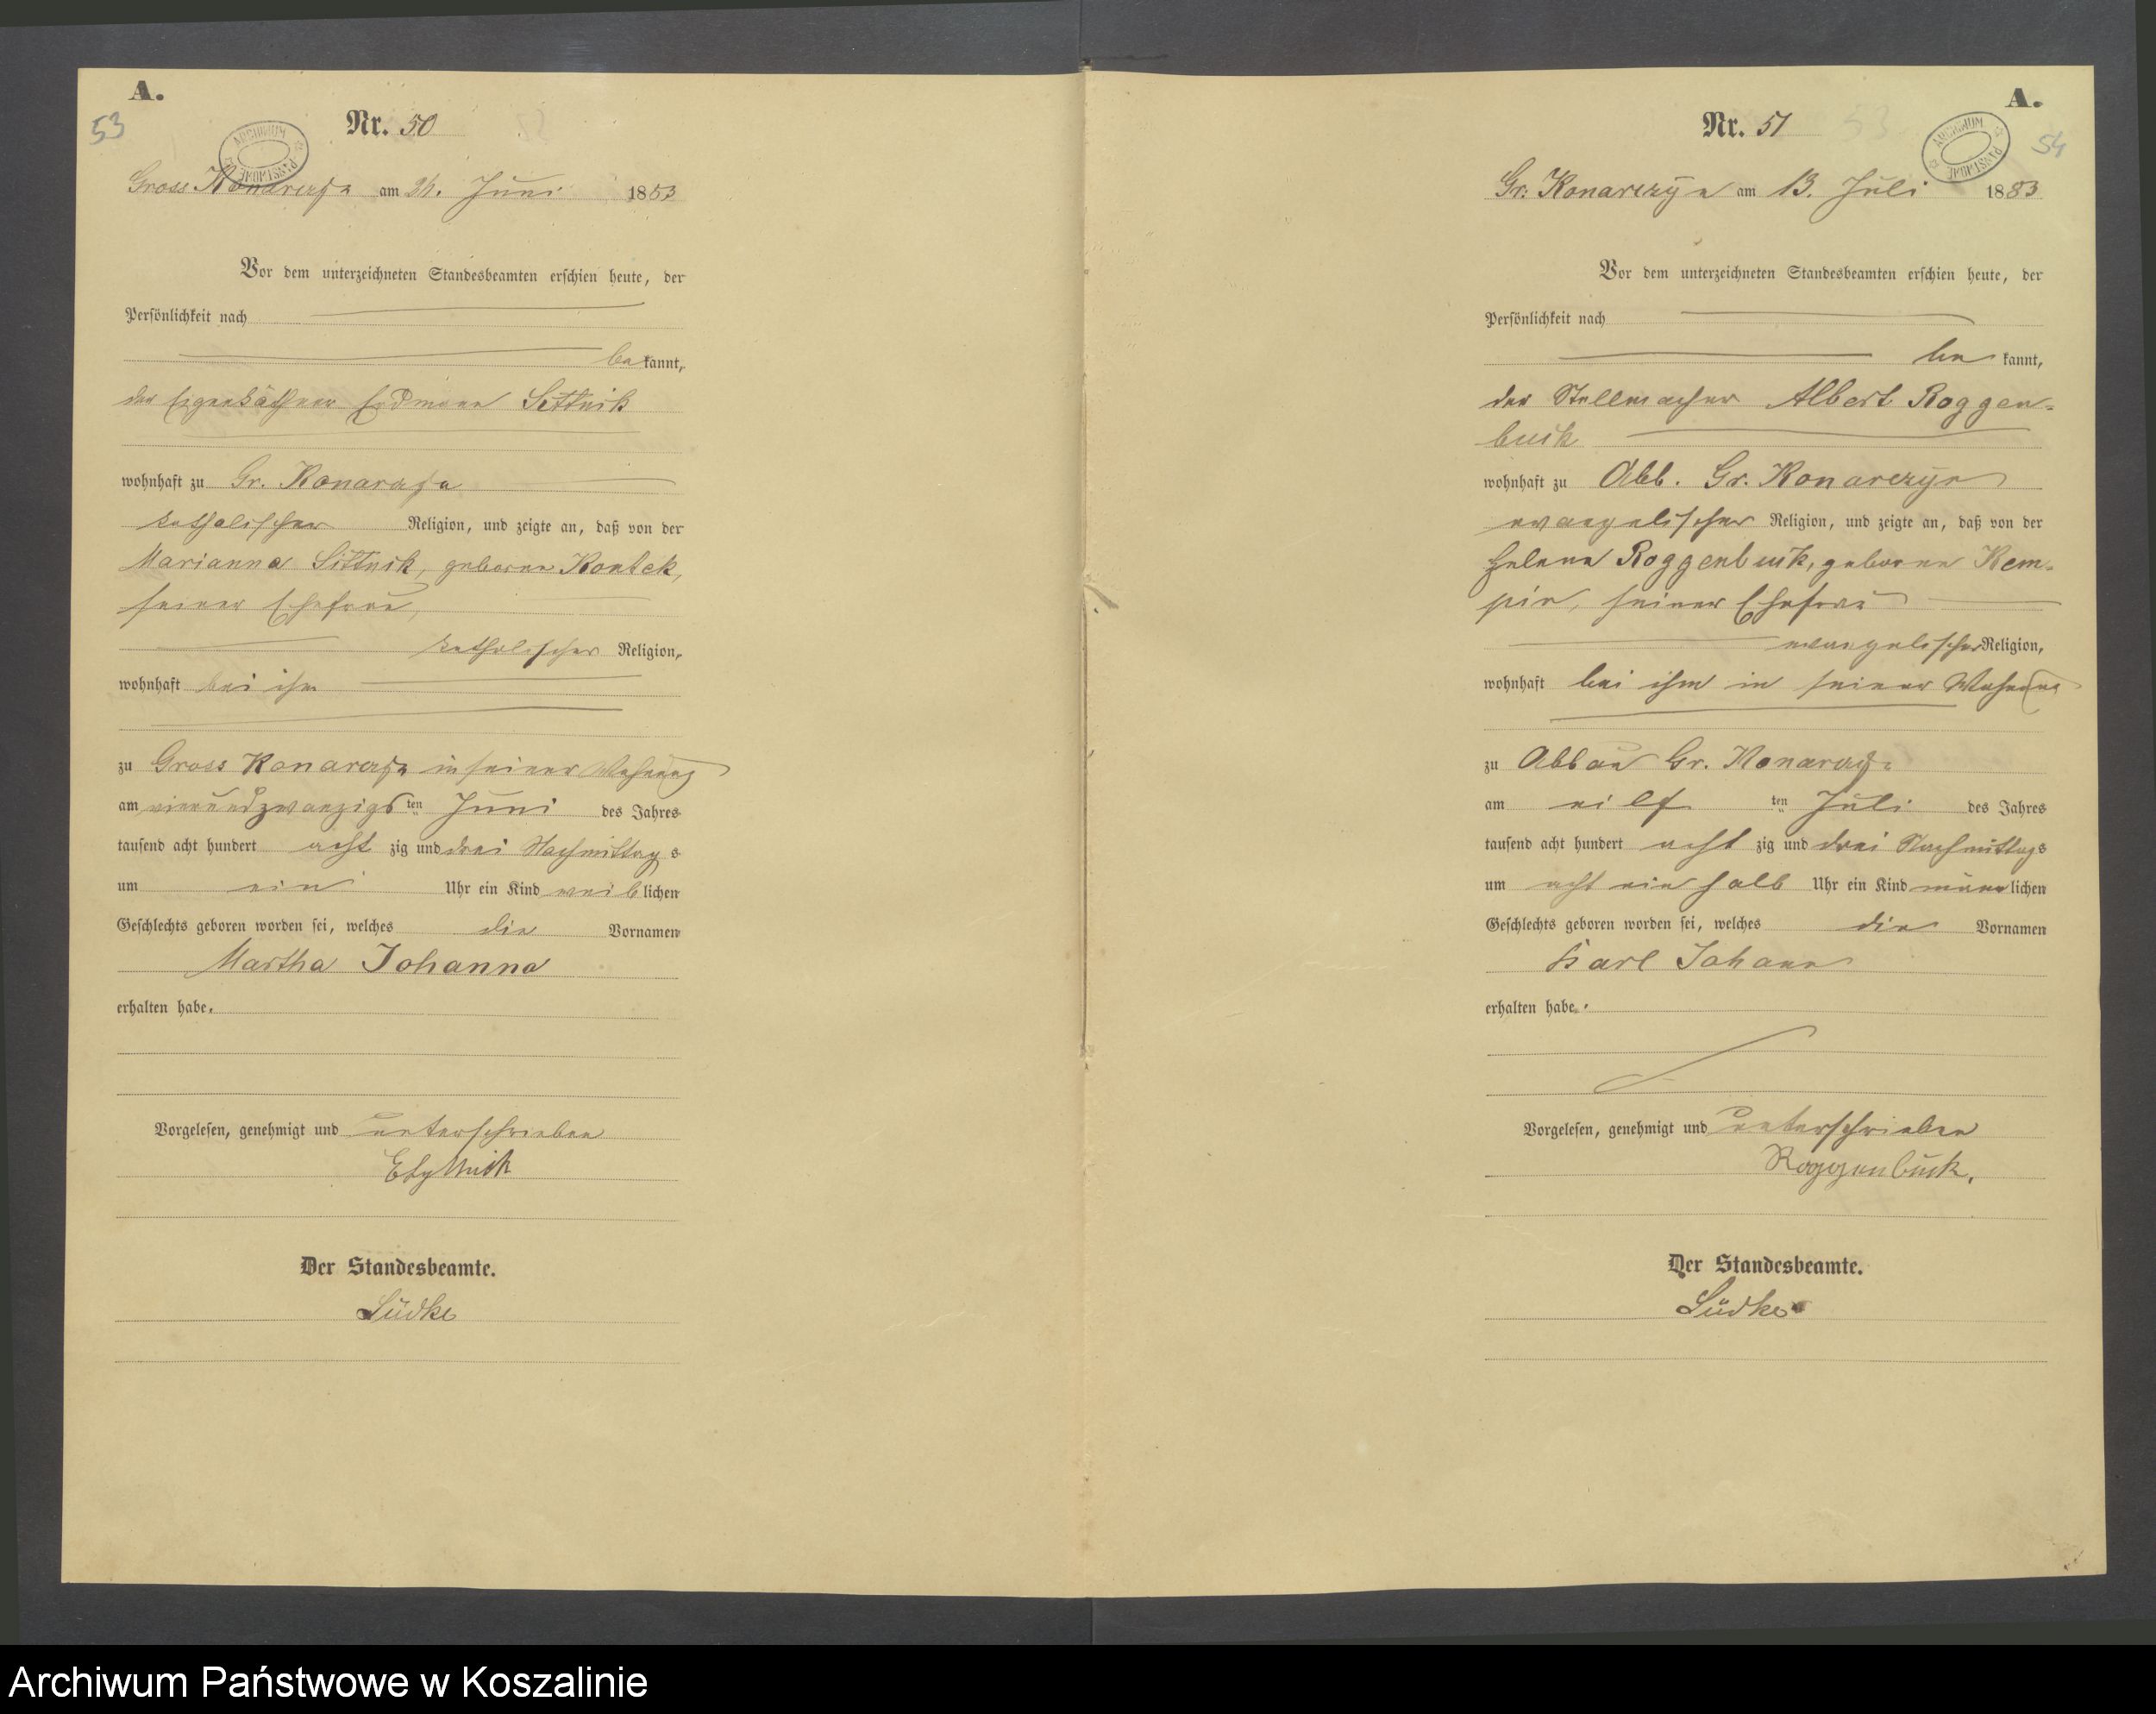 A.
53
Nr. 50
ARCHIWUM PAŃSTWOWE
Gross Konarczyn am 24. Juni 1883
Vor dem unterzeichneten Standesbeamten erschien heute, der
Persönlichkeit nach
bekannt,
der Eigenkäthner Erdmann Sittnik
wohnhaft zu Gr. Konarczyn
katholischer Religion, und zeigte an, daß von der
Marianna Sittnik, geborene Kontek,
seiner Ehefrau,
katholischer Religion,
wohnhaft bei ihm
zu Gross Konarczyn in seiner Wohnung
am vierundzwanzigsten Juni des Jahres
tausend acht hundert achtzig und drei Nachmittags
um ein Uhr ein Kind weiblichen
Geschlechts geboren worden sei, welches die Vornamen
Martha Johanna
erhalten habe.
Vorgelesen, genehmigt und unterschrieben
Der Standesbeamte.
Lüdke
A.
54
Nr. 51
ARCHIWUM PAŃSTWOWE
Gr. Konarczyn am 13. Juli 1883
Vor dem unterzeichneten Standesbeamten erschien heute, der
Persönlichkeit nach
bekannt,
der Stellmacher Albert Roggen-
buck
wohnhaft zu Abb. Gr. Konarczyn
evangelischer Religion, und zeigte an, daß von der
Helene Roggenbuck, geborene Kem-
pin, seiner Ehefrau
evangelischer Religion,
wohnhaft bei ihm in seiner Wohnung
zu Abbau Gr. Konarczyn
am eilften Juli des Jahres
tausend acht hundert achtzig und drei Nachmittags
um acht ein halb Uhr ein Kind männlichen
Geschlechts geboren worden sei, welches die Vornamen
Karl Johann
erhalten habe.
Vorgelesen, genehmigt und unterschrieben
Roggenbuck.
Der Standesbeamte.
Lüdke
Archiwum Państwowe w Koszalinie